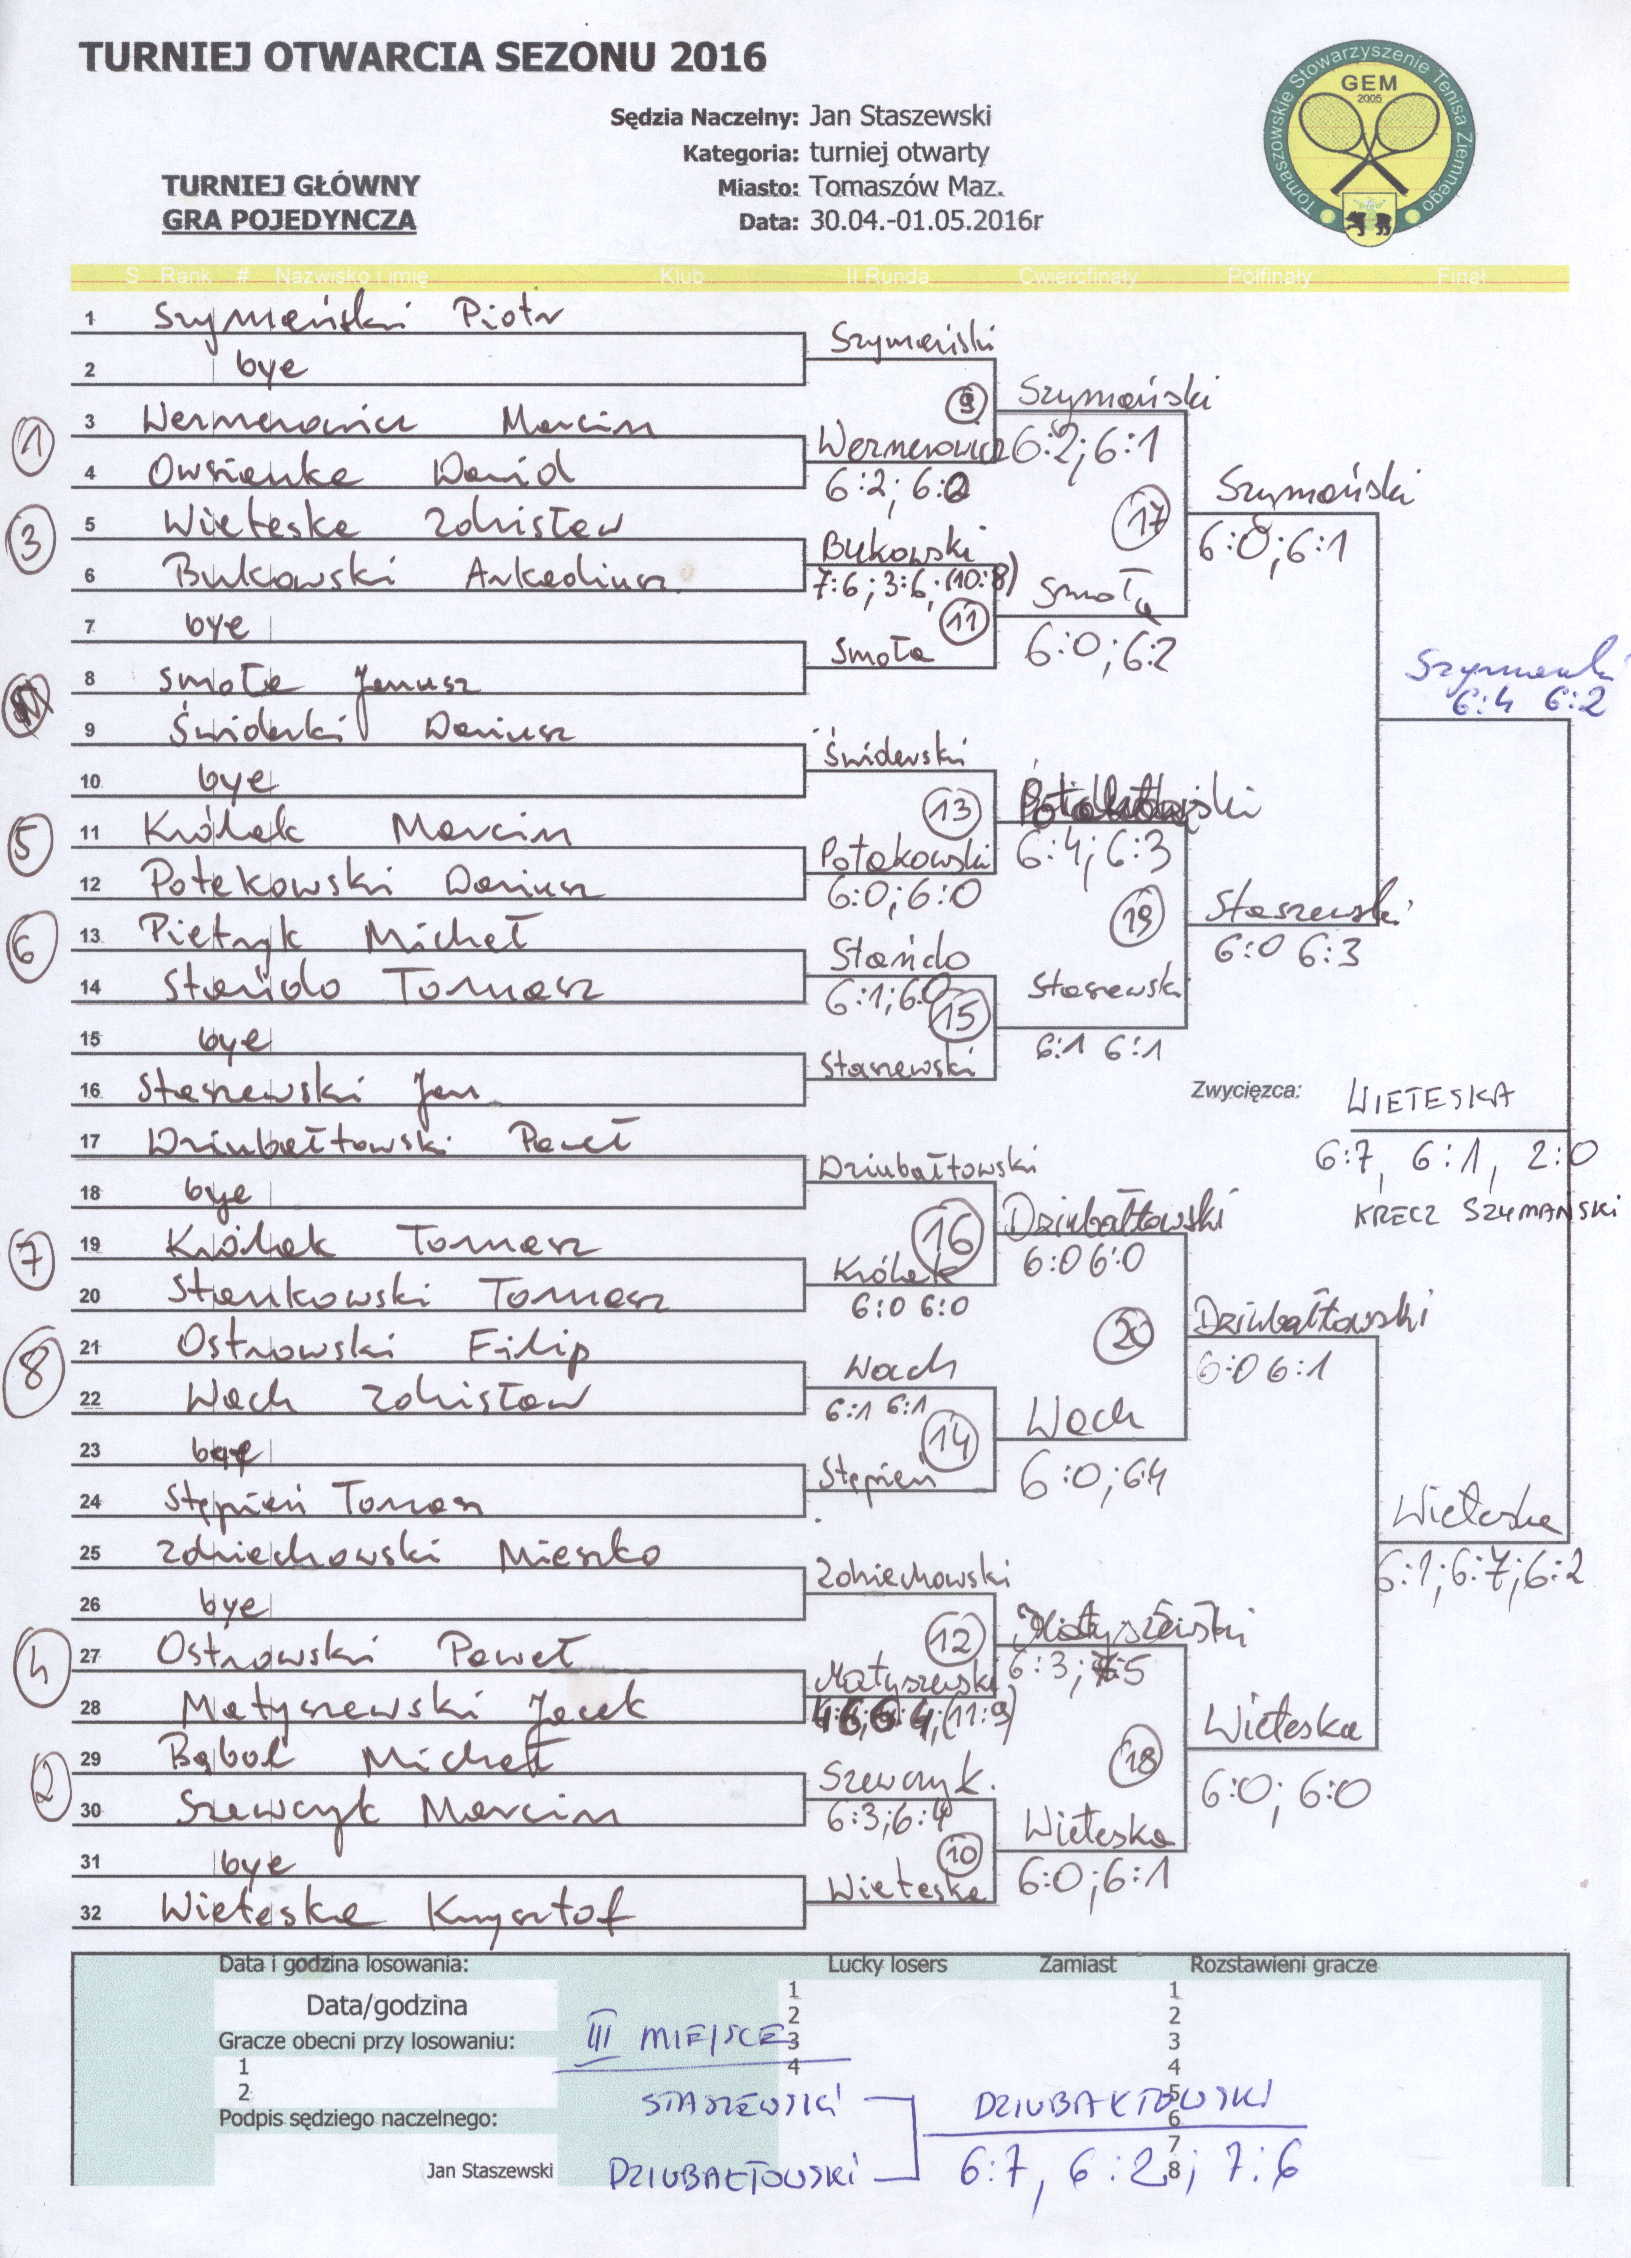 TURNIEJ OTWARCIA SEZONU 2016
Tomaszowskie Stowarzyszenie Tenisa Ziemnego
GEM
2005
Sędzia Naczelny: Jan Staszewski
Kategoria: turniej otwarty
TURNIEJ GŁÓWNY
Miasto: Tomaszów Maz.
GRA POJEDYNCZA
Data: 30.04.-01.05.2016r
S Rank # Nazwisko i imię Klub II Runda Ćwierćfinały Półfinały Finał
1 Szymański Piotr
2 bye
3 Wermerowicz Marcin
4 Owsianka Dawid
5 Wieteska Zdzisław
6 Bukowski Arkadiusz
7 bye
8 Smoła Janusz
9 Świderski Dariusz
10 bye
11 Królak Marcin
12 Potakowski Dariusz
13 Pietrzyk Michał
14 Stańdo Tomasz
15 bye
16 Staszewski Jan
17 Dziubałtowski Paweł
18 bye
19 Królak Tomasz
20 Stankowski Tomasz
21 Ostrowski Filip
22 Wach Zdzisław
23 bye
24 Stępień Tomasz
25 Zdziechowski Mieszko
26 bye
27 Ostrowski Paweł
28 Matyszewski Jacek
29 Bąbol Michał
30 Szewczyk Marcin
31 bye
32 Wieteska Krzysztof
1
3
5
6
7
8
4
2
Szymański
Wermerowicz
6:2; 6:0
Bukowski
7:6; 3:6; (10:8)
Smoła
Świderski
Potakowski
6:0; 6:0
Stańdo
6:1; 6:0
Staszewski
Dziubałtowski
Królak
6:0 6:0
Wach
6:1 6:1
Stępień
Zdziechowski
Matyszewski
4:6; 6:4; (11:9)
Szewczyk.
6:3; 6:4
Wieteska
9
11
13
15
16
14
12
10
Szymański
6:2; 6:1
Smoła
6:0; 6:2
6:4; 6:3
Staszewski
6:1 6:1
Dziubałtowski
6:0 6:0
Wach
6:0; 6:4
Matyszewski
6:3; 7:5
Wieteska
6:0; 6:1
17
19
20
18
Szymański
6:0; 6:1
Staszewski
6:0 6:3
Dziubałtowski
6:0 6:1
Wieteska
6:0; 6:0
Szymański
6:4 6:2
Wieteska
6:1; 6:7; 6:2
Zwycięzca: WIETESKA
6:7, 6:1, 2:0
KRECZ SZYMAŃSKI
Data i godzina losowania: Lucky losers Zamiast Rozstawieni gracze
Data/godzina
Gracze obecni przy losowaniu:
1
2
Podpis sędziego naczelnego:
Jan Staszewski
1
2
3
4
1
2
3
4
5
6
7
8
III MIEJSCE
STASZEWSKI
DZIUBAŁTOWSKI
DZIUBAŁTOWSKI
6:7, 6:2; 7:6